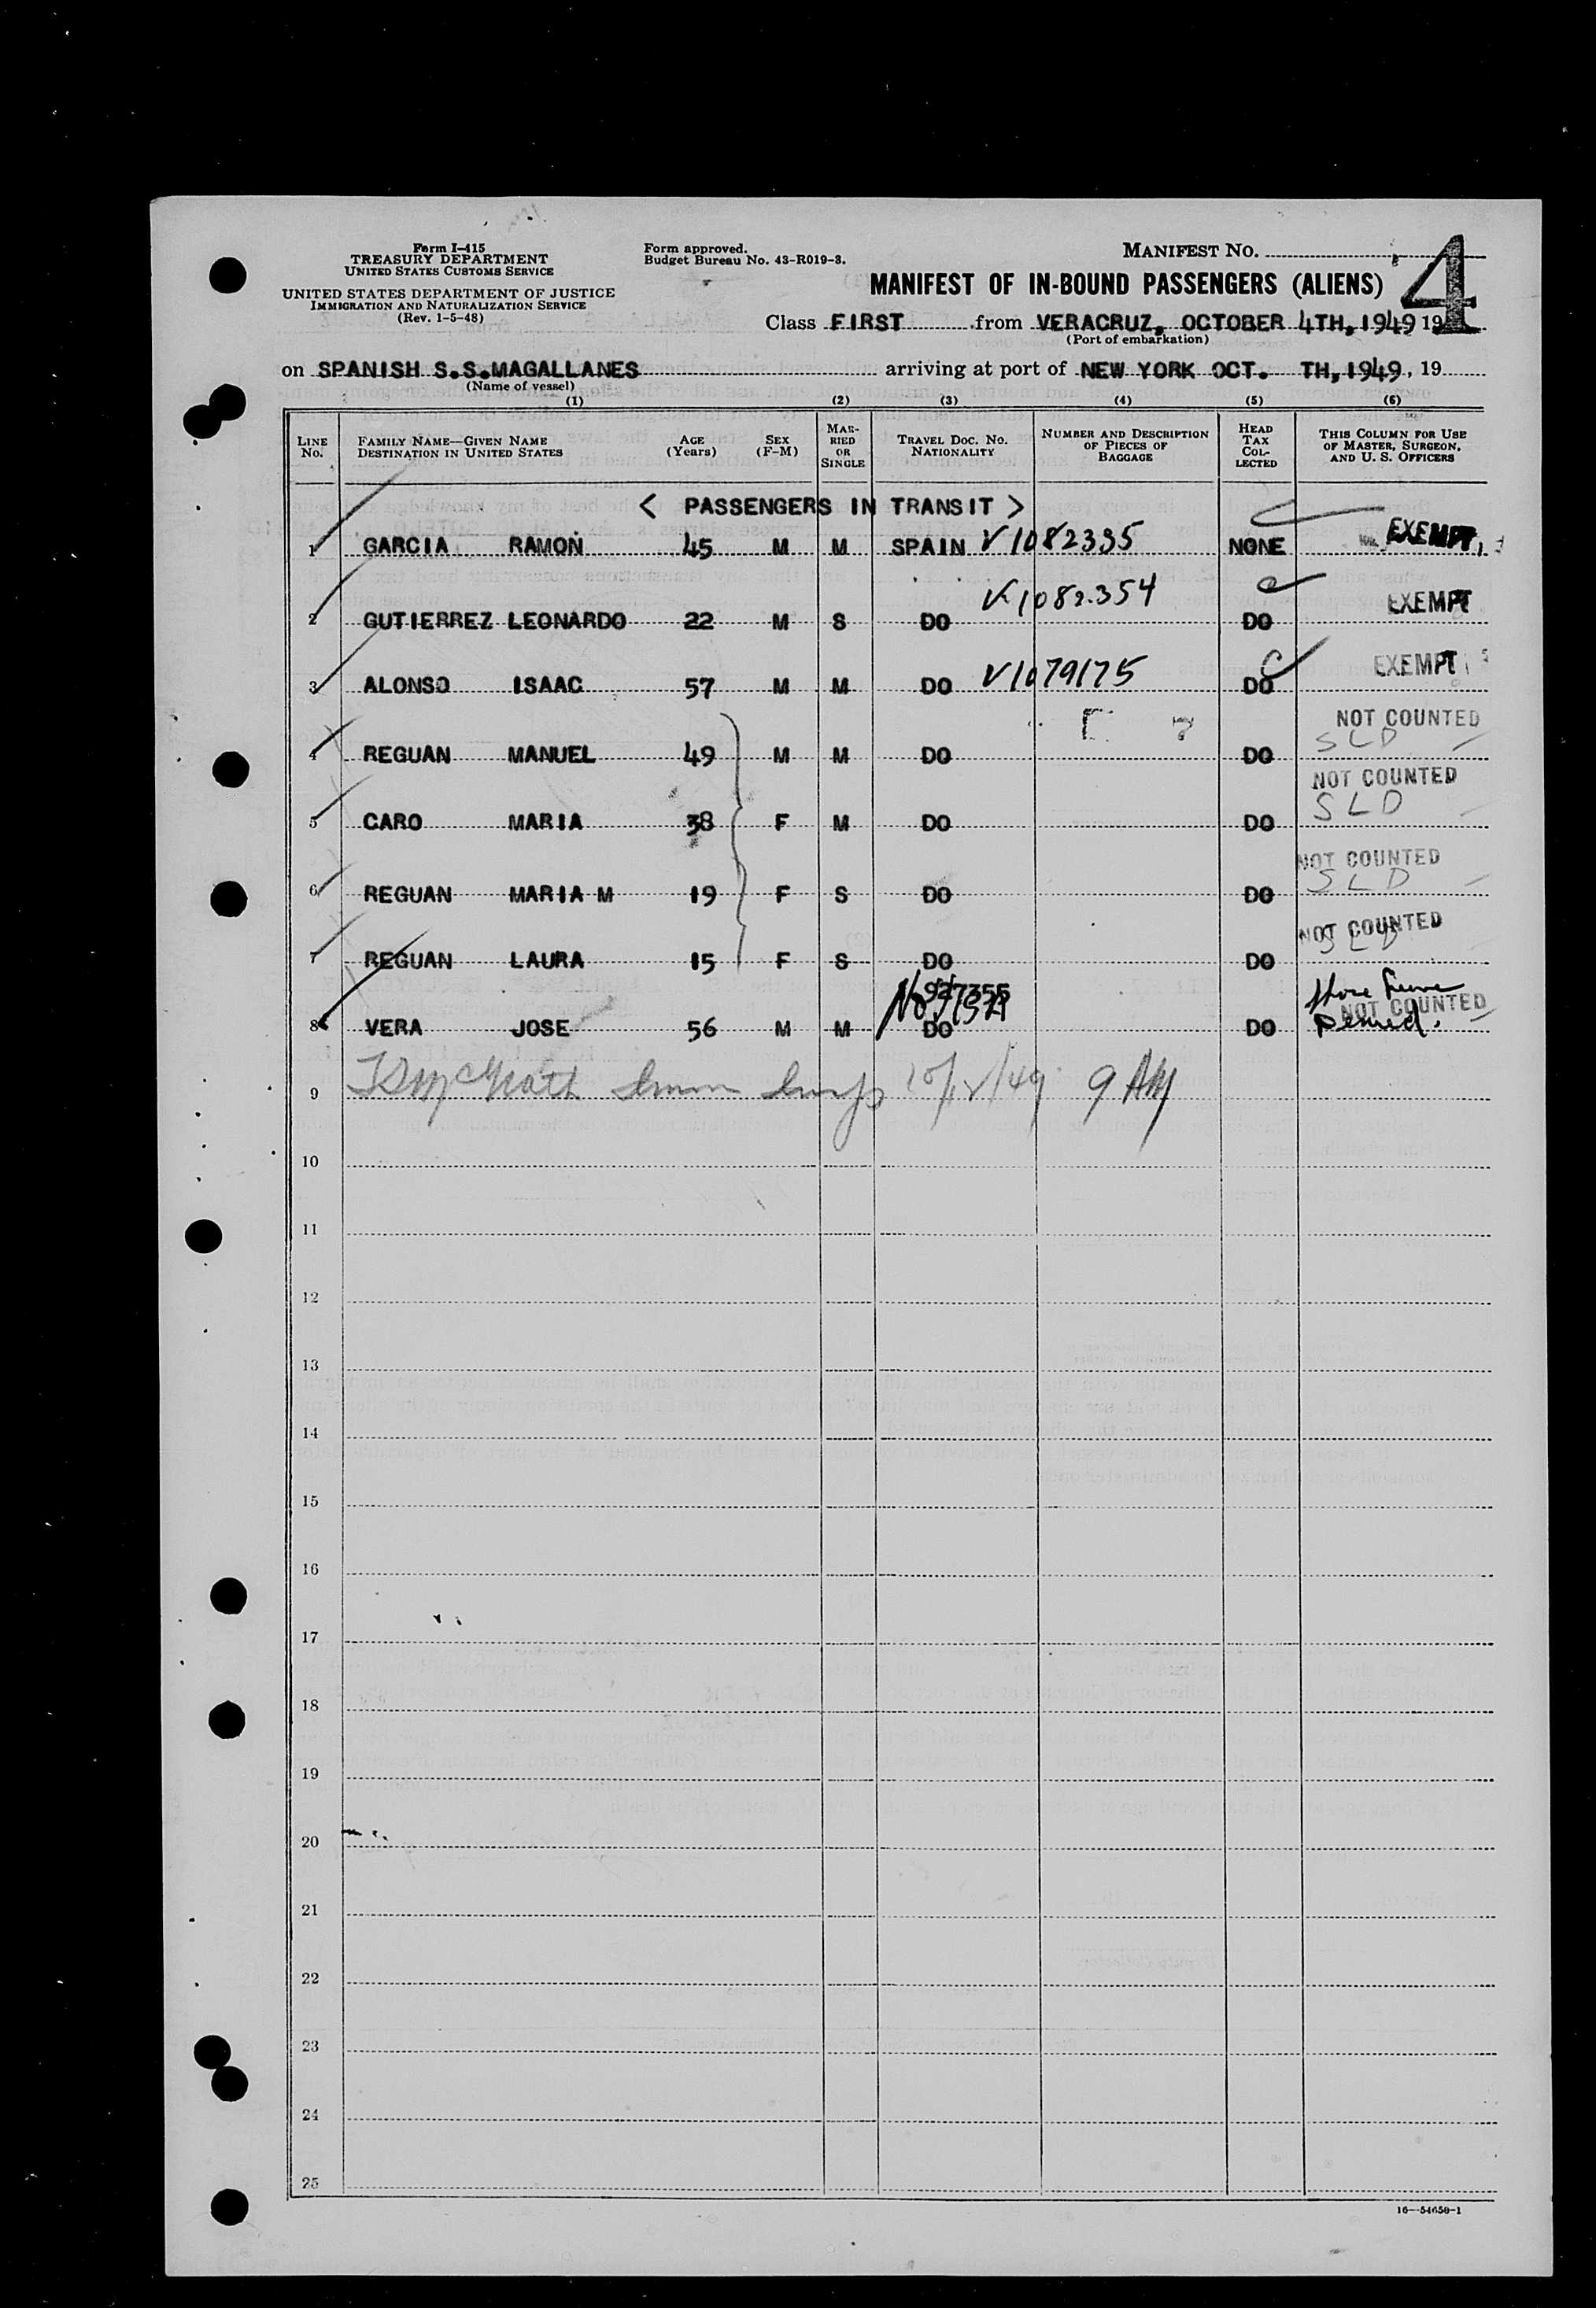 Form I-415
TREASURY DEPARTMENT
UNITED STATES CUSTOMS SERVICE
UNITED STATES DEPARTMENT OF JUSTICE
IMMIGRATION AND NATURALIZATION SERVICE
(Rev. 1-5-48)
Form approved.
Budget Bureau No. 43-R019-3.
MANIFEST NO. 4
MANIFEST OF IN-BOUND PASSENGERS (ALIENS)
Class FIRST from VERACRUZ, OCTOBER 4TH, 1949 19
(Port of embarkation)
on SPANISH S.S.MAGALLANES arriving at port of NEW YORK OCT. TH, 1949, 19
(Name of vessel)
(1) (2) (3) (4) (5) (6)
LINE No. FAMILY NAME—GIVEN NAME DESTINATION IN UNITED STATES AGE (Years) SEX (F-M) MARRIED OR SINGLE TRAVEL DOC. NO. NATIONALITY NUMBER AND DESCRIPTION OF PIECES OF BAGGAGE HEAD TAX COLLECTED THIS COLUMN FOR USE OF MASTER, SURGEON, AND U. S. OFFICERS
< PASSENGERS IN TRANSIT >
1 GARCIA RAMON 45 M M SPAIN V1082335 NONE EXEMPT
2 GUTIERREZ LEONARDO 22 M S DO V1082354 DO EXEMPT
3 ALONSO ISAAC 57 M M DO V1079175 DO EXEMPT
4 REGUAN MANUEL 49 M M DO DO NOT COUNTED SLD
5 CARO MARIA 38 F M DO DO NOT COUNTED SLD
6 REGUAN MARIA M 19 F S DO DO NOT COUNTED SLD
7 REGUAN LAURA 15 F S DO DO NOT COUNTED SLD
8 VERA JOSE 56 M M DO DO NOT COUNTED Shore Leave Denied.
9 McGrath Imm Insp 10/12/49 9 AM
10
11
12
13
14
15
16
17
18
19
20
21
22
23
24
25
16—54658-1